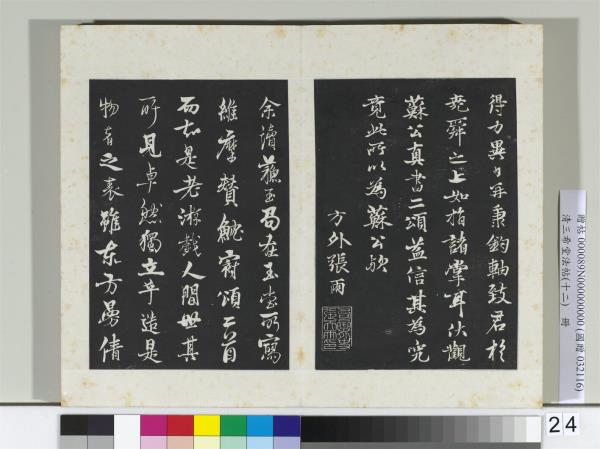 得力異日年秉鈞軸致君於
堯舜之上如指諸掌耳伏觀
蘇公真書二頌益信其為究
竟此所以為蘇公歟
方外張雨
余讀蘇玉局在玉堂所寫
維摩贊魷窾頌二首
而知是老游戲人間世其
所見卓然獨立乎造是
物者之表雖東方曼倩
贈帖 000089N000000000 (國贈 032116)
清三希堂法帖(十二) 冊
24